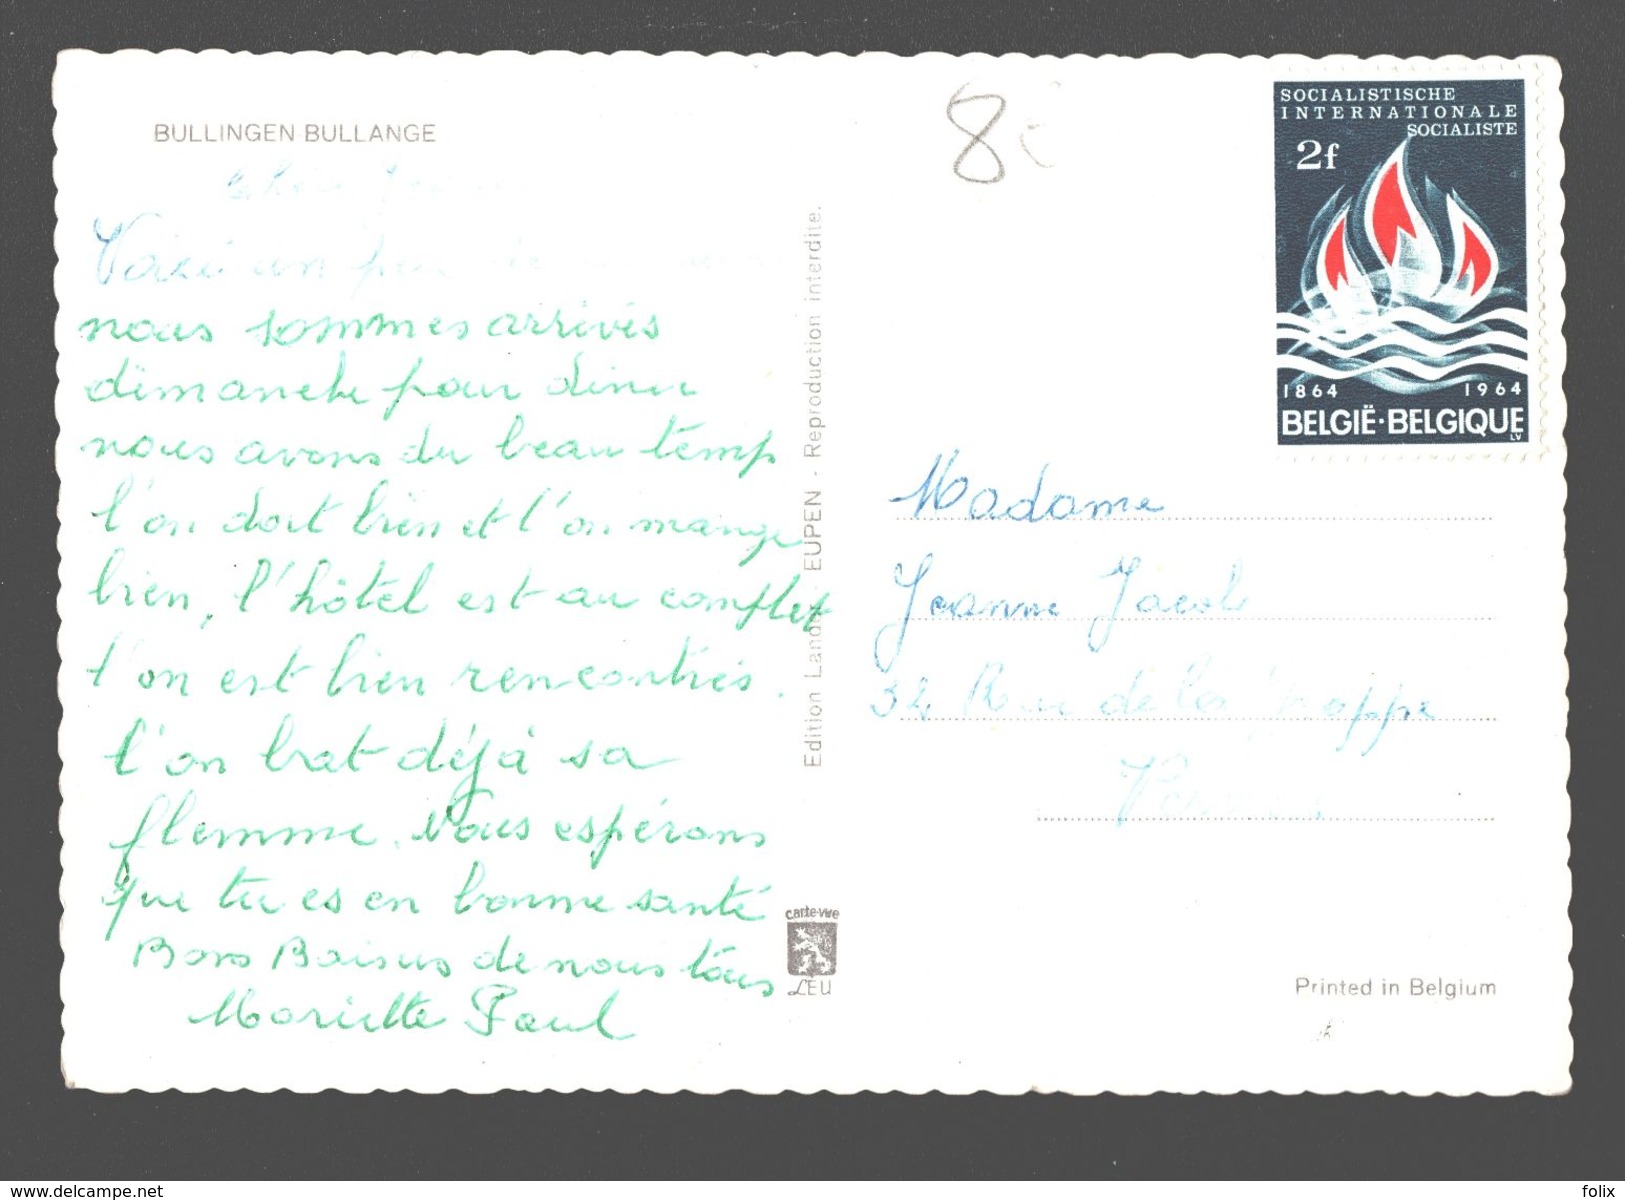 BULLINGEN-BULLANGE
Voici un peu de
nous sommes arrivés
dimanche pour diner
nous avons du beau temp
l'on dort bien et l'on mange
bien, l'hôtel est au complet
l'on est bien rencontrés.
l'on bat déjà sa
flemme. Nous espérons
que tu es en bonne santé
Bons Baisers de nous tous
Mariette Paul
Edition Lander EUPEN - Reproduction interdite.
carte-vue
LEU
8
SOCIALISTISCHE
INTERNATIONALE
SOCIALISTE
2f
1864 1964
BELGIË·BELGIQUE
LV
Madame
Jeanne Jacob
34 Rue de la
Printed in Belgium
https://www.delcampe.net
folix